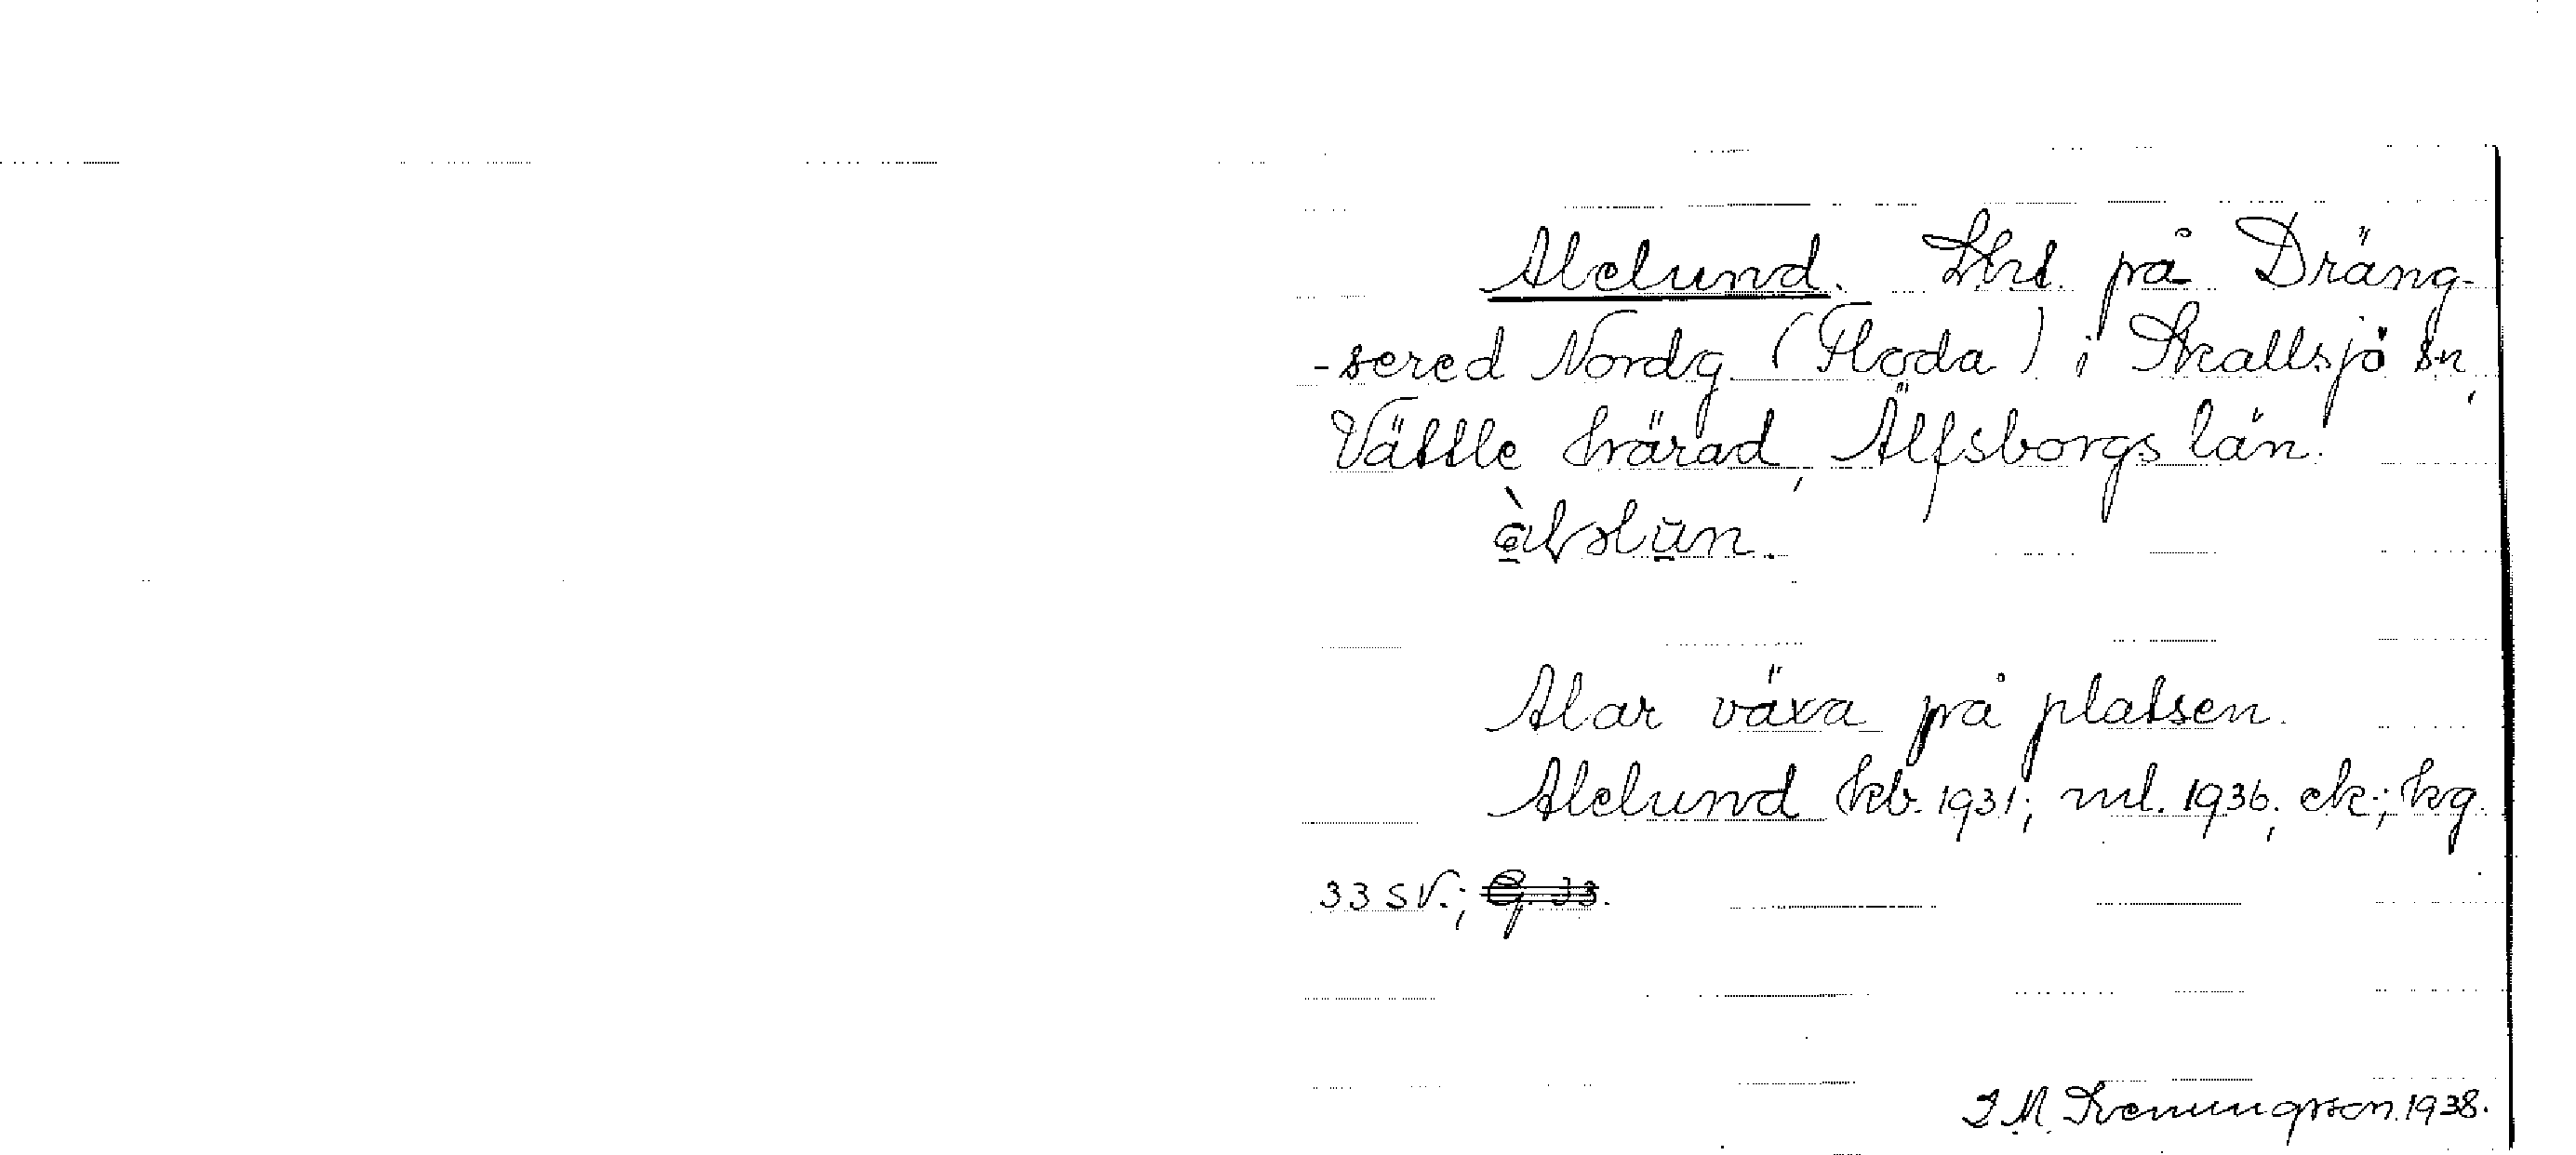 Alelund. Lht. på Dräng-
-sered Nordg. (Floda) i Skallsjö sn,
Vättle härad, Älfsborgs län.
Alar växa på platsen.
Alelund kb. 1931; ml. 1936; ek; kg.
33 SV.; G. 33.
I M 1938.